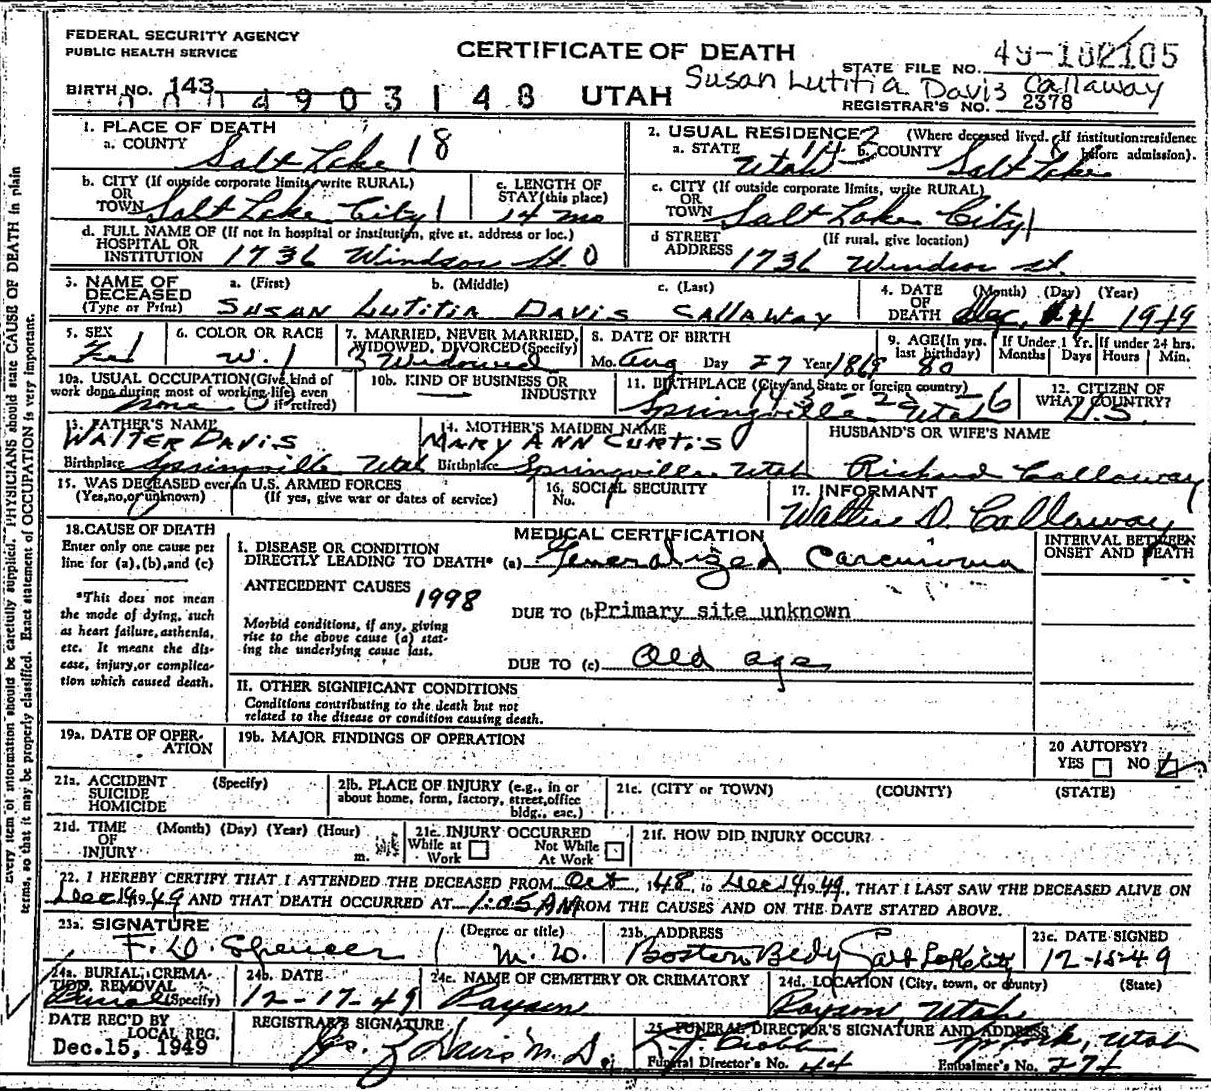 FEDERAL SECURITY AGENCY
PUBLIC HEALTH SERVICE
CERTIFICATE OF DEATH
STATE FILE NO.
Susan Lutitia Davis Callaway
BIRTH NO. 143
4903148
UTAH
REGISTRAR'S NO. 2378
1. PLACE OF DEATH
a. COUNTY Salt Lake 18
2. USUAL RESIDENCE (Where deceased lived. If institution: residence before admission).
a. STATE Utah b. COUNTY Salt Lake
b. CITY (If outside corporate limits, write RURAL) OR TOWN Salt Lake City
c. LENGTH OF STAY (this place) 14 mo
c. CITY (If outside corporate limits, write RURAL) OR TOWN Salt Lake City
d. FULL NAME OF (If not in hospital or institution, give st. address or loc.) HOSPITAL OR INSTITUTION 1736 Windsor St. 0
d STREET ADDRESS (If rural, give location) 1736 Windsor St.
3. NAME OF DECEASED (Type or Print) a. (First) b. (Middle) c. (Last)
Susan Lutitia Davis Callaway
4. DATE OF DEATH (Month) (Day) (Year) Dec. 14 1949
5. SEX
6. COLOR OR RACE W. 1
7. MARRIED, NEVER MARRIED, WIDOWED, DIVORCED (Specify) 3 Widowed
8. DATE OF BIRTH Mo. Aug Day 27 Year 1869
9. AGE (In yrs. last birthday) 80
If Under 1 Yr. Months Days
If under 24 hrs. Hours Min.
10a. USUAL OCCUPATION (Give kind of work done during most of working life, even if retired) none
10b. KIND OF BUSINESS OR INDUSTRY —
11. BIRTHPLACE (City and State or foreign country) Springville Utah
12. CITIZEN OF WHAT COUNTRY? U.S.
13. FATHER'S NAME
Walter Davis
Birthplace Springville Utah
14. MOTHER'S MAIDEN NAME
Mary Ann Curtis
Birthplace Springville Utah
HUSBAND'S OR WIFE'S NAME
Richard Callaway
15. WAS DECEASED ever in U.S. ARMED FORCES
(Yes, no, or unknown) (If yes, give war or dates of service)
16. SOCIAL SECURITY No.
17. INFORMANT
Walter D. Callaway
18. CAUSE OF DEATH
Enter only one cause per line for (a), (b), and (c)
*This does not mean the mode of dying, such as heart failure, asthenia, etc. It means the disease, injury, or complication which caused death.
MEDICAL CERTIFICATION
INTERVAL BETWEEN ONSET AND DEATH
I. DISEASE OR CONDITION DIRECTLY LEADING TO DEATH* (a) Generalized Carcinoma
ANTECEDENT CAUSES 1998
DUE TO (b) Primary site unknown
Morbid conditions, if any, giving rise to the above cause (a) stating the underlying cause last.
DUE TO (c) Old age
II. OTHER SIGNIFICANT CONDITIONS
Conditions contributing to the death but not related to the disease or condition causing death.
19a. DATE OF OPERATION
19b. MAJOR FINDINGS OF OPERATION
20 AUTOPSY? YES NO
21a. ACCIDENT SUICIDE HOMICIDE (Specify)
21b. PLACE OF INJURY (e.g., in or about home, form, factory, street, office bldg., eac.)
21c. (CITY or TOWN) (COUNTY) (STATE)
21d. TIME OF INJURY (Month) (Day) (Year) (Hour) m.
21e. INJURY OCCURRED While at Work Not While At Work
21f. HOW DID INJURY OCCUR?
22. I HEREBY CERTIFY THAT I ATTENDED THE DECEASED FROM Oct, 1948, to Dec 14 1949, THAT I LAST SAW THE DECEASED ALIVE ON
Dec 14 1949 AND THAT DEATH OCCURRED AT 1:05 AM FROM THE CAUSES AND ON THE DATE STATED ABOVE.
23a. SIGNATURE (Degree or title)
F. D. Spencer M. D.
23b. ADDRESS
Boston Bldg Salt Lake City
23c. DATE SIGNED
12-15-49
24a. BURIAL, CREMATION, REMOVAL (Specify) Burial
24b. DATE
12-17-49
24c. NAME OF CEMETERY OR CREMATORY
Payson
24d. LOCATION (City, town, or county) (State)
Payson, Utah
DATE REC'D BY LOCAL REG.
Dec. 15, 1949
REGISTRAR'S SIGNATURE
Davis M. D.
25. FUNERAL DIRECTOR'S SIGNATURE AND ADDRESS
Sp Fork, Utah
Funeral Director's No. 44
Embalmer's No. 274
Every item of information should be carefully supplied. PHYSICIANS should state CAUSE OF DEATH in plain
terms, so that it may be properly classified. Exact statement of OCCUPATION is very important.